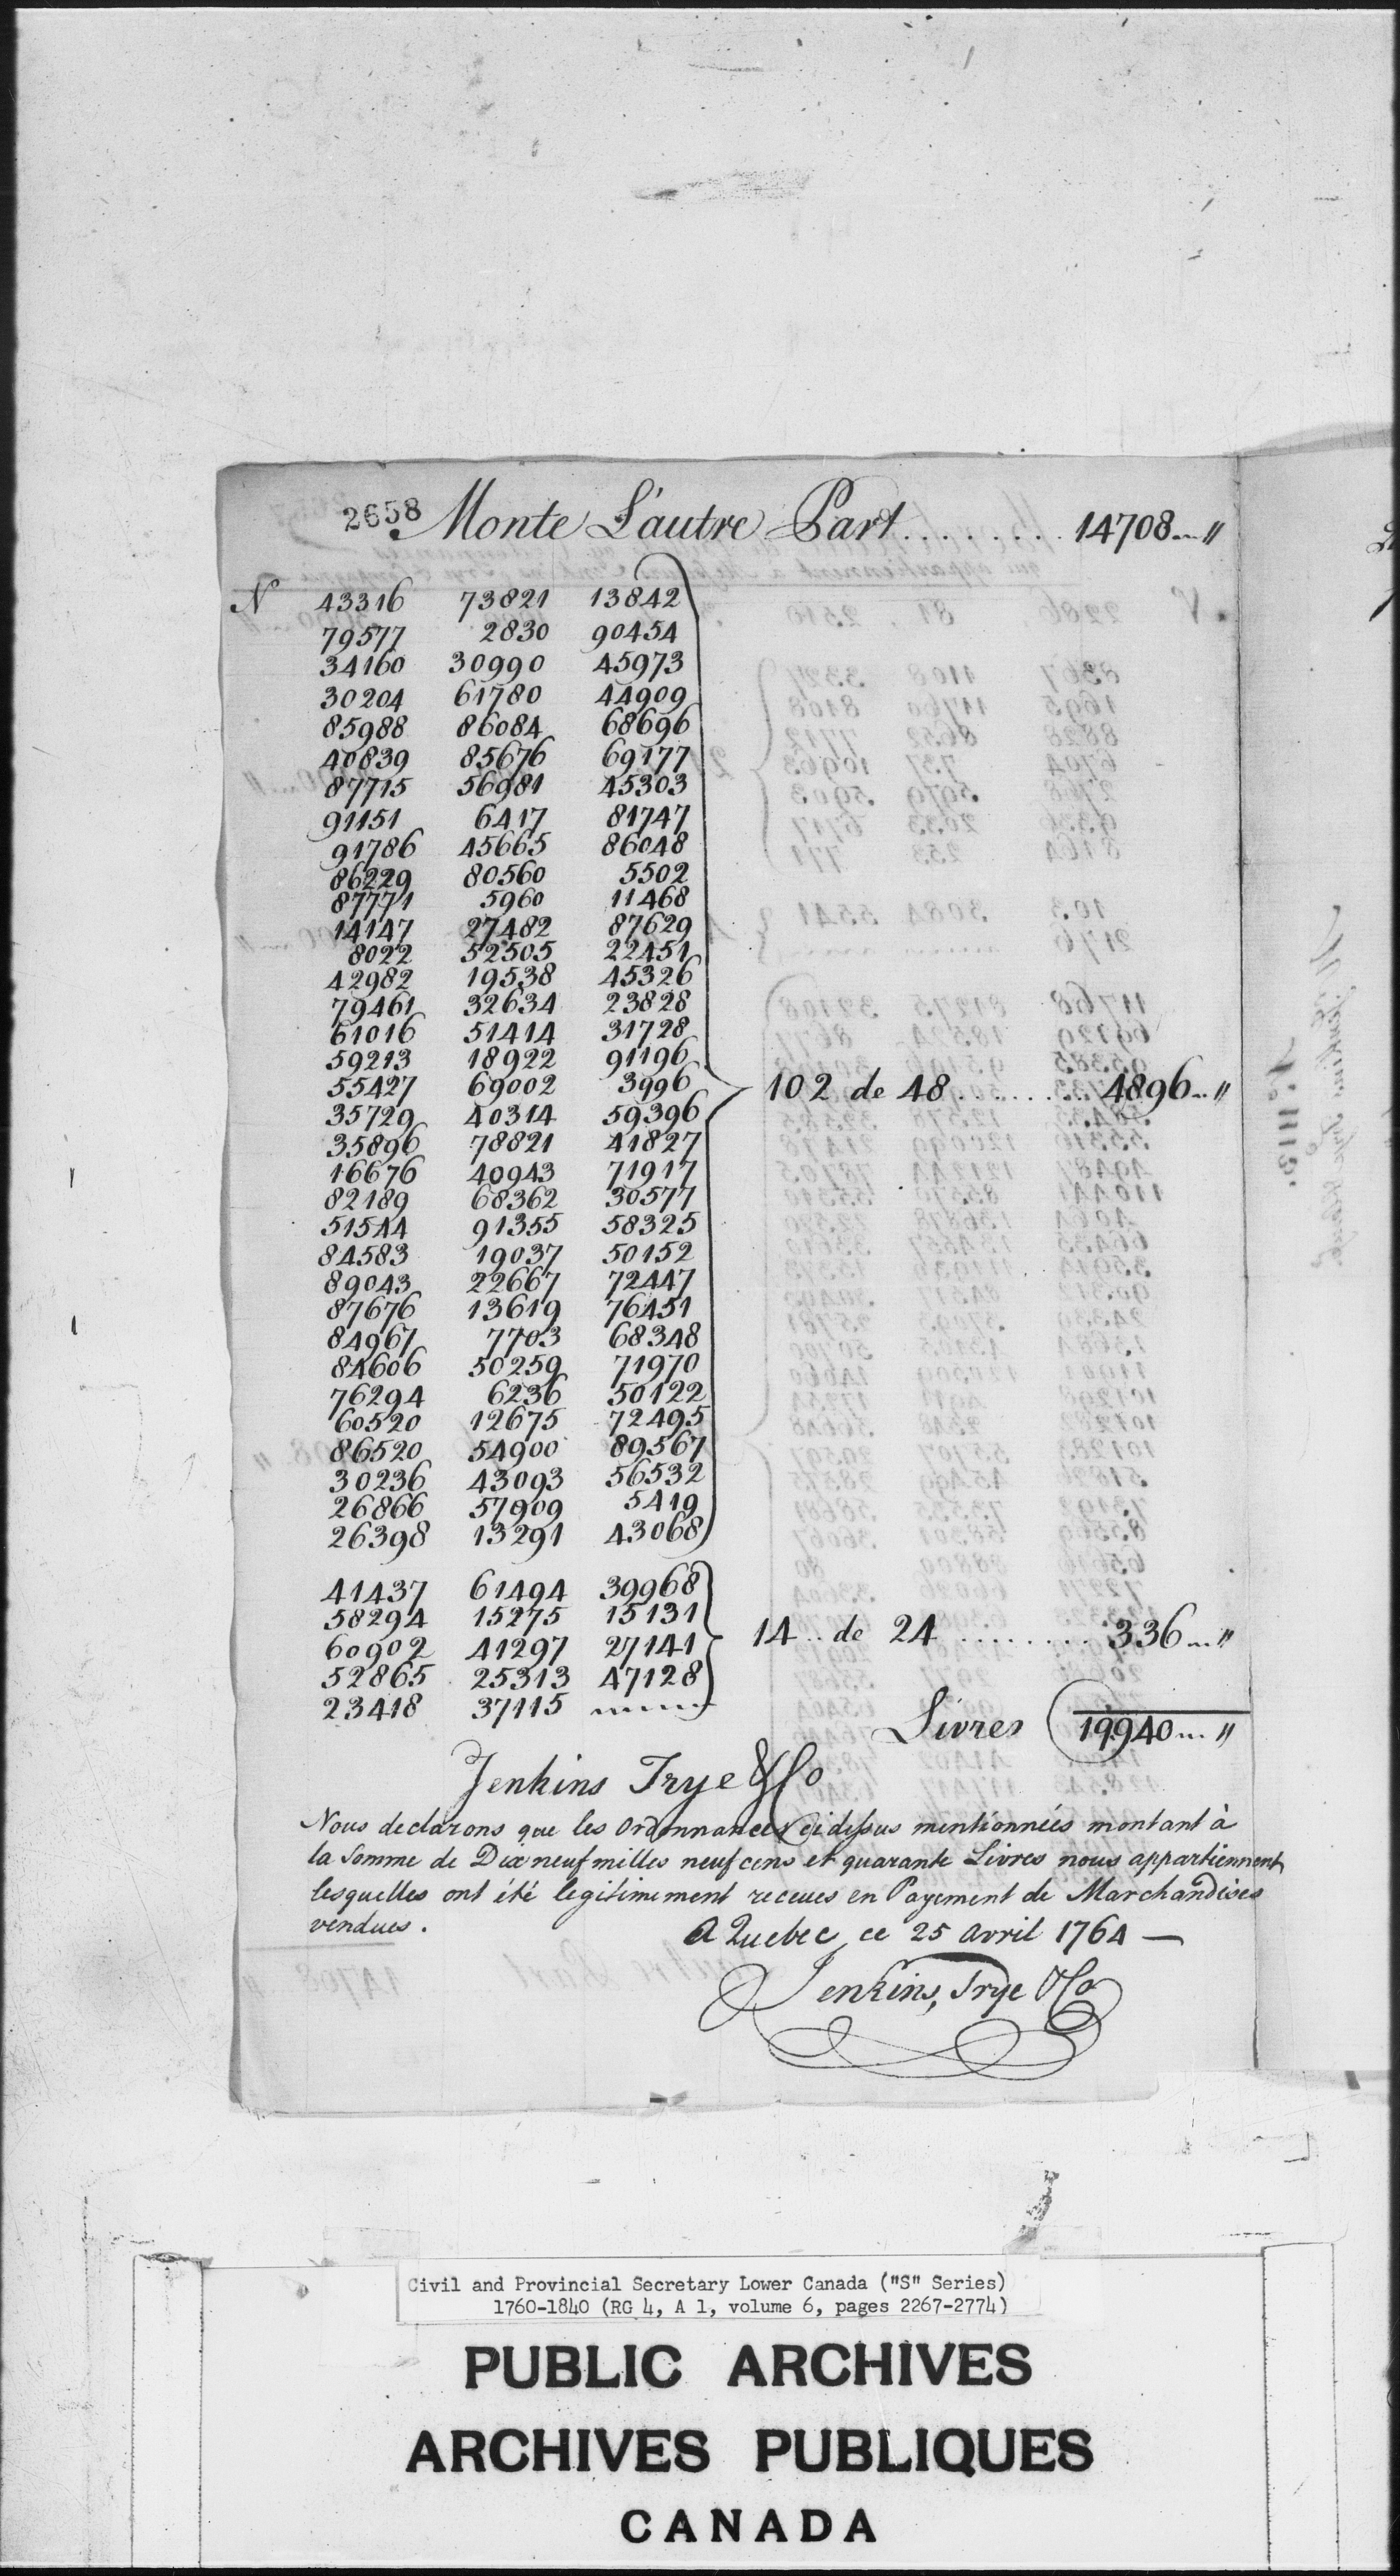 2658 Monte L'autre Part ........ 14708 ... "
N 43316 73821 13842
79577 2830 90454
34160 30990 45973
30204 61780 44909
85988 86084 68696
40839 85676 69177
87715 56981 45303
91151 6417 81747
91786 45665 86048
86229 80560 5502
87771 5960 11468
14147 27482 87629
8022 52505 22451
42982 19538 45326
79461 32634 23828
61016 51414 31728
59213 18922 91196
55427 69002 3996 102 de 48 ........ 4896 ... "
35729 40314 59396
35896 78821 41827
16676 40943 71917
82189 68362 30577
51544 91355 58325
84583 19037 50152
89043 22667 72447
87676 13619 76451
84967 7703 68348
84606 50259 71970
76294 6236 50122
60520 12675 72495
86520 54900 89567
30236 43093 56532
26866 57909 5419
26398 13291 43068
41437 61494 39968
58294 15275 15131
60902 41297 27141 14 .. de 24 ........ 336 ... "
52865 25313 47128
23418 37115
Livres 19940 ... "
Jenkins Trye & Co
Nous declarons que les Ordonnances ci dessus mentionnées montant à
la Somme de Dix neuf milles neuf cens et quarante Livres nous appartiennent
lesquelles ont été legitimement receues en Payement de Marchandises
vendues.
A Quebec ce 25 avril 1764 —
Jenkins, Trye & Co
No. 1113.
Civil and Provincial Secretary Lower Canada ("S" Series)
1760-1840 (RG 4, A 1, volume 6, pages 2267-2774)
PUBLIC ARCHIVES
ARCHIVES PUBLIQUES
CANADA